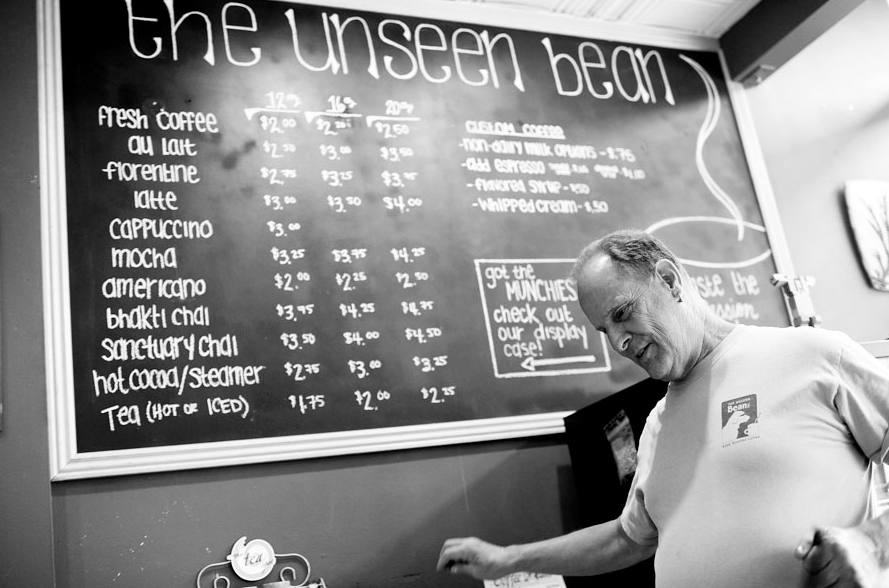 the unseen bean
12oz 16oz 20oz
fresh coffee $2.00 $2.25 $2.50
au lait $2.50 $3.00 $3.50
florentine $2.75 $3.25 $3.75
latte $3.00 $3.50 $4.00
cappuccino $3.00
mocha $3.25 $3.75 $4.25
americano $2.00 $2.25 $2.50
bhakti chai $3.75 $4.25 $4.75
sanctuary chai $3.50 $4.00 $4.50
hot cocoa/steamer $2.75 $3.00 $3.25
Tea (HOT OR ICED) $1.75 $2.00 $2.25
CUSTOM COFFEE
-non-dairy milk options - $.75
-add espresso
-flavored syrup - $.50
-whipped cream - $.50
got the
MUNCHIES
check out
our display
case!
the
Bean
tea